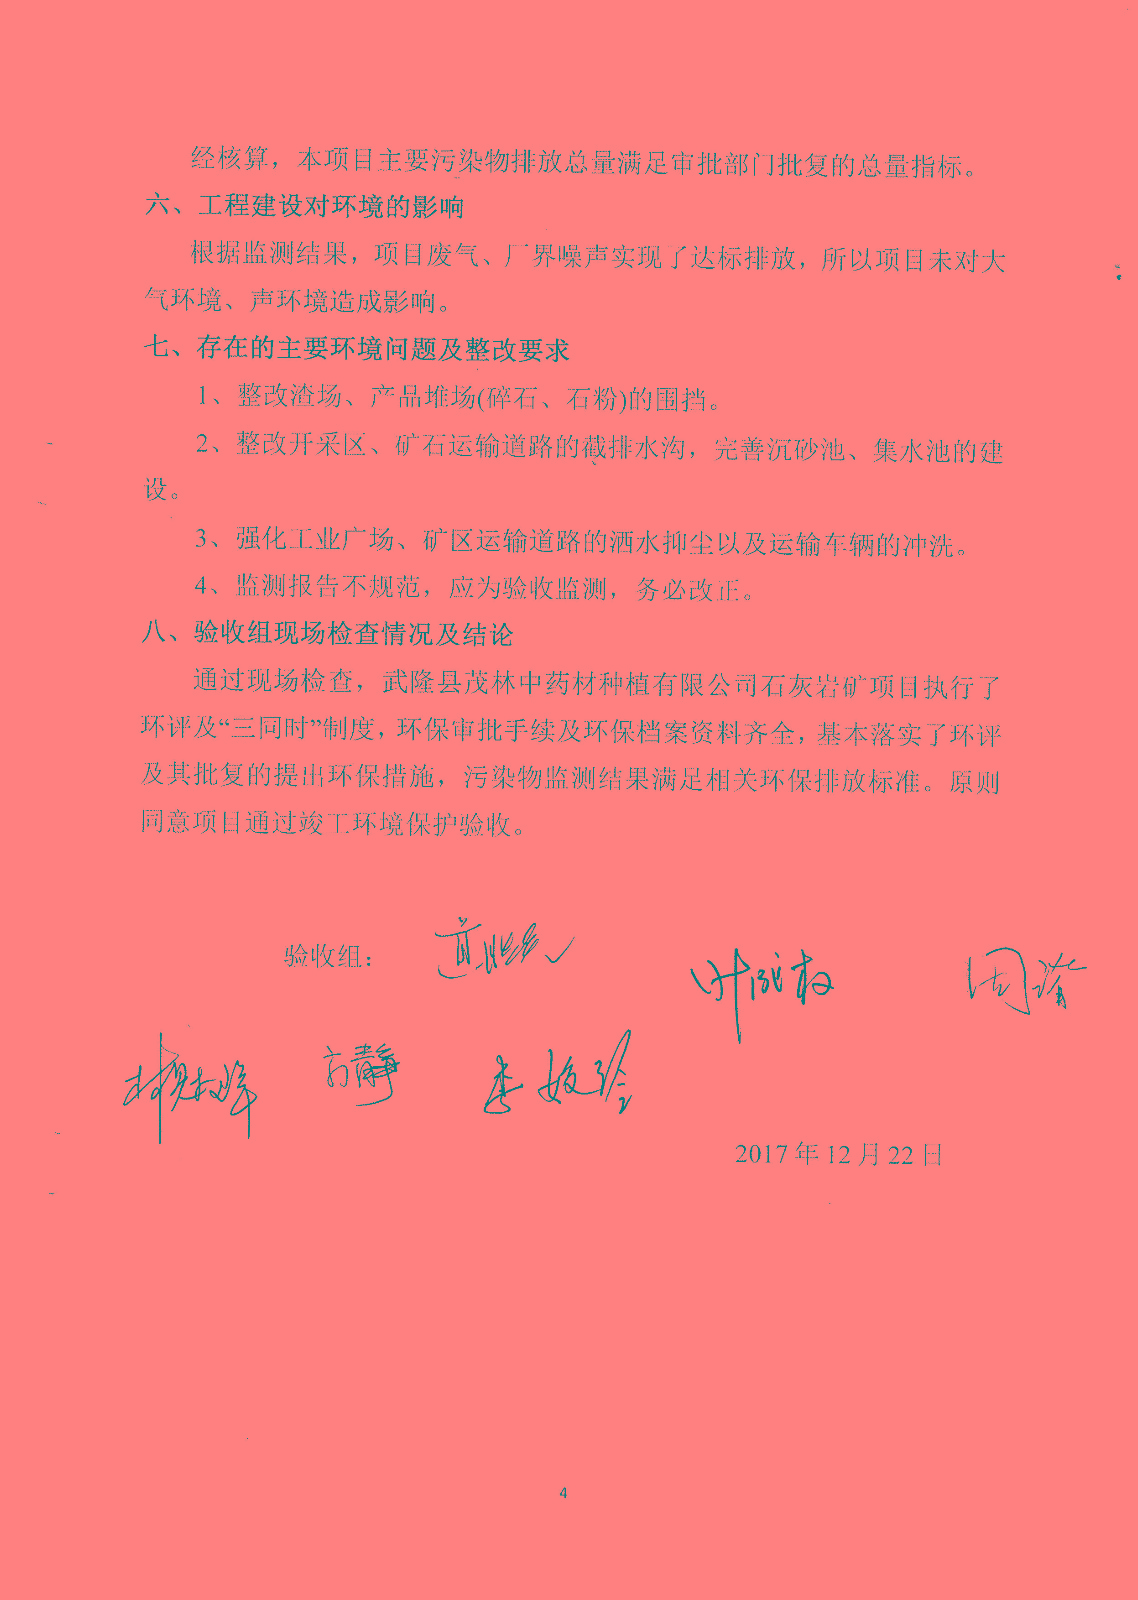 经核算，本项目主要污染物排放总量满足审批部门批复的总量指标。
六、工程建设对环境的影响
根据监测结果，项目废气、厂界噪声实现了达标排放，所以项目未对大
气环境、声环境造成影响。
七、存在的主要环境问题及整改要求
1、整改渣场、产品堆场(碎石、石粉)的围挡。
2、整改开采区、矿石运输道路的截排水沟，完善沉砂池、集水池的建
设。
3、强化工业广场、矿区运输道路的洒水抑尘以及运输车辆的冲洗。
4、监测报告不规范，应为验收监测，务必改正。
八、验收组现场检查情况及结论
通过现场检查，武隆县茂林中药材种植有限公司石灰岩矿项目执行了
环评及“三同时”制度，环保审批手续及环保档案资料齐全，基本落实了环评
及其批复的提出环保措施，污染物监测结果满足相关环保排放标准。原则
同意项目通过竣工环境保护验收。
验收组：
方静
2017年12月22日
4